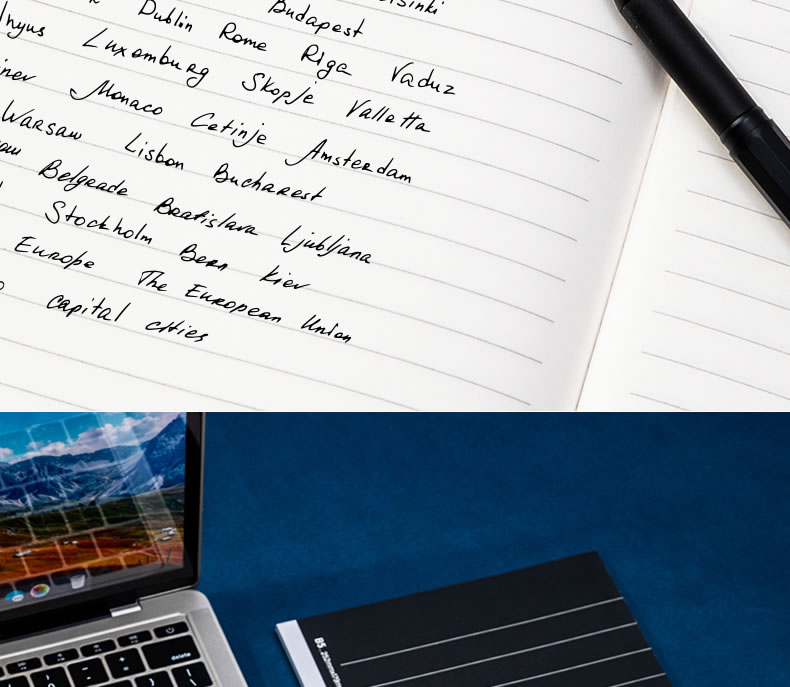 Budapest
Dublin Rome Riga Vaduz
Luxemburg Skopje Valletta
Monaco Cetinje Amsterdam
Warsaw Lisbon Bucharest
Belgrade Bratislava Ljubljana
Stockholm Bern Kiev
Europe The European Union
capital cities
delete
B5